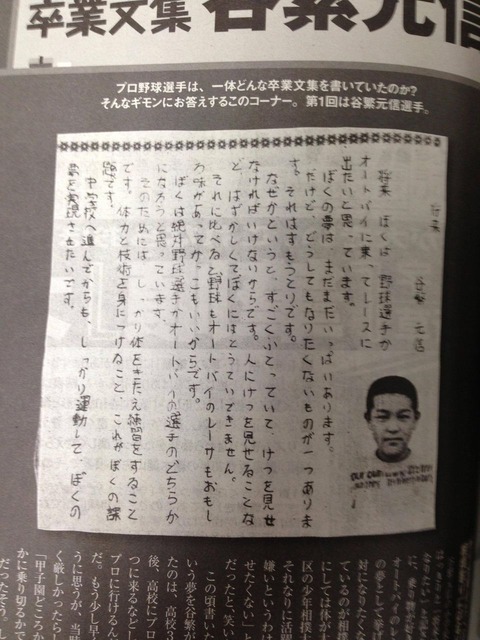 卒業文集 谷繁元信
プロ野球選手は、一体どんな卒業文集を書いていたのか?
そんなギモンにお答えするこのコーナー。第1回は谷繁元信選手。
将来
谷繁 元信
将来 ぼくは 野球選手か
オートバイに乗ってレースに
出たいと思っています。
ぼくの夢は、まだまだいっぱいあります。
だけど、どうしてもなりたくないものが一つありま
す。それはすもうとりです。
なぜかというと、すごくふとっていて、けつを見せ
なければいけないからです。人にけつを見せることな
ど、はずかしくてぼくにはとうていできません。
それに比べると野球もオートバイのレーサもおもし
ろ味があってかっこもいいからです。
ぼくは絶対野球選手かオートバイの選手のどちらか
になろうと思っています。
そのためには、しっかり体をきたえ練習をすること
です。体力と技術を身につけること、これがぼくの課
題です。
中学校へ進んでからも、しっかり運動して、ぼくの
夢を実現させたいです。
なりたいと
に、乗り物が
オートバイのレー
の夢として挙げ
対になりたくない
ているのがお相撲
にしては体が
区の少年相撲
それなりに
嫌いというわ
せたくない」と
だった」と笑い
この頃書い
いう夢を谷繁が
たのは、高校3
後、高校にプロ
つに来るなどし
プロに行けるん
だ。もう少し早
うに思うが、当
く厳しかったらし
「甲子園どころか
かに乗り切るかで
だったそう。